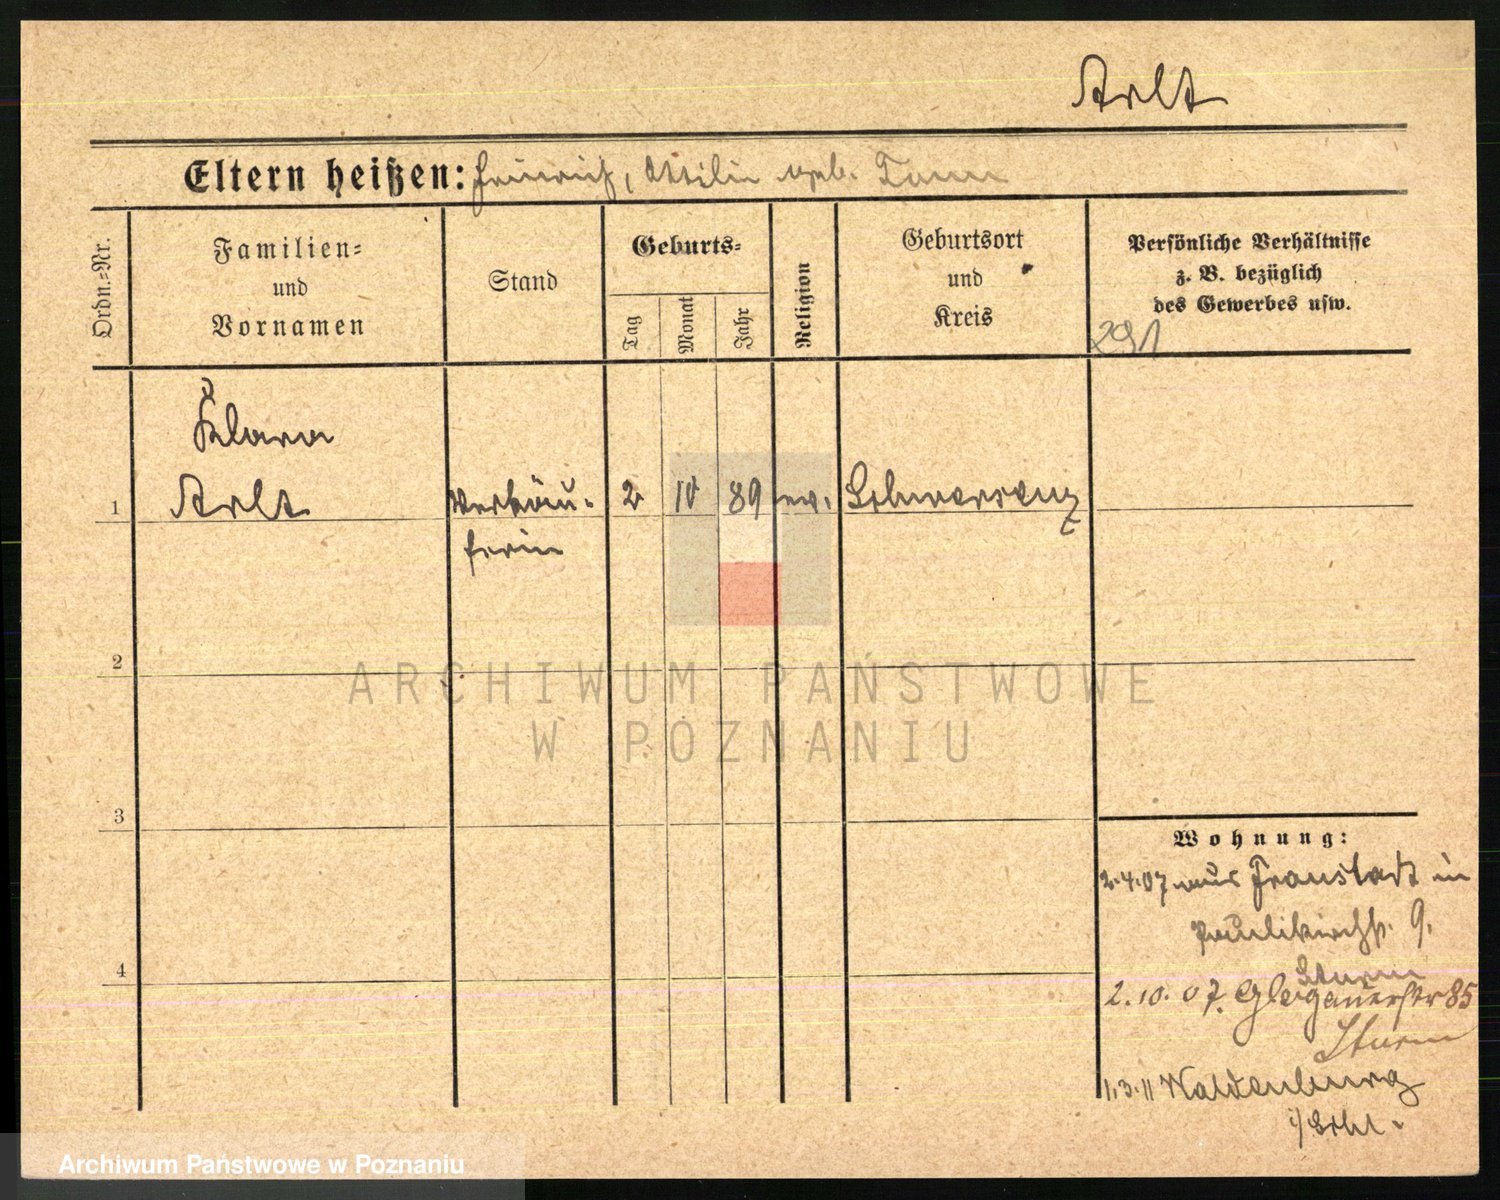 Arlt
Eltern heißen: Heinrich, Ottilie geb. Tann
Ordn.=Nr.
Familien=
und
Vornamen
Stand
Geburts=
Tag
Monat
Jahr
Religion
Geburtsort
und
Kreis
Persönliche Verhältnisse
z. B. bezüglich
des Gewerbes usw.
291
Klara
1 Arlt Verkäu- 2 IV 89 ev. Schwersenz
ferin
2
3
4
Wohnung:
2.4.07 aus Fraustadt in
Paulikirchstr. 9.
Sturm
2.10.07. Glogauerstr 85
Sturm
1.3.11 Waldenburg
i/Schl.
ARCHIWUM PAŃSTWOWE
W POZNANIU
Archiwum Państwowe w Poznaniu